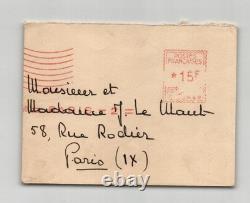 POSTES
FRANÇAISES
*15F
Monsieur et
Madame J. Le Maut
58, Rue Rodier
Paris (IX)